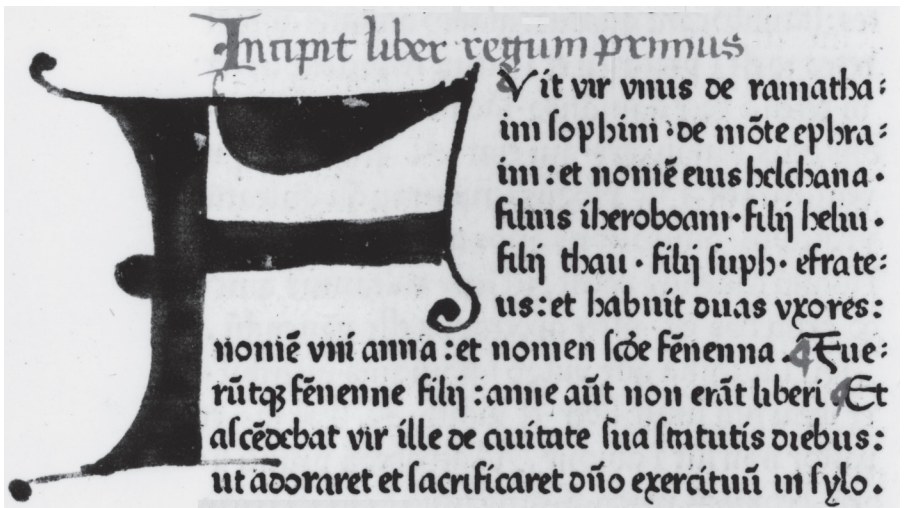 Incipit liber regum primus
FVit vir vnus de ramatha:
im sophim :de mōte ephra:
im :et nomē eius helchana·
filius iheroboam·filij heliu·
filij thau·filij suph·efrate:
us:et habuit duas vxores:
nomē vni anna :et nomen scđe fēnenna .Fue:
rūtqꝫ fēnenne filij :anne aūt non erāt liberi Et
ascēdebat vir ille de ciuitate sua statutis diebus:
ut adoraret et sacrificaret dn̄o exercituū in sylo.